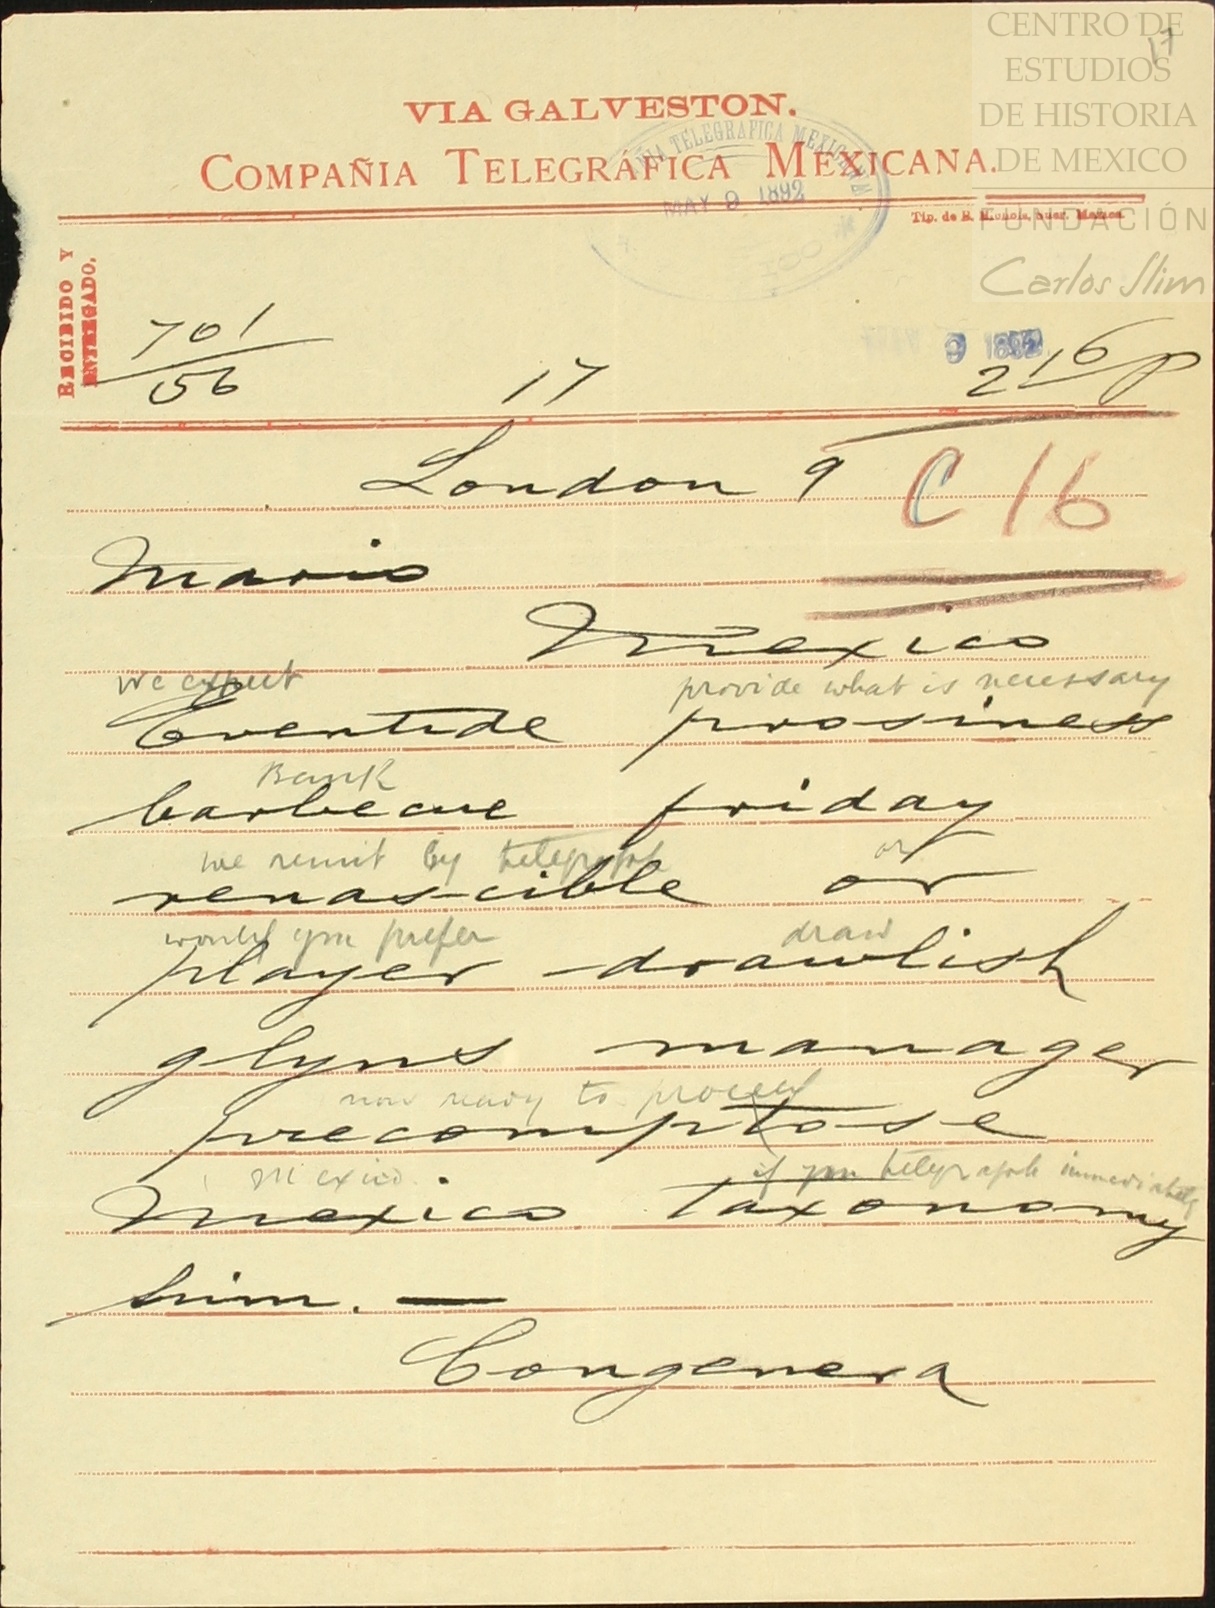 CENTRO DE
ESTUDIOS
DE HISTORIA
DE MEXICO
FUNDACIÓN
Carlos Slim
17
VIA GALVESTON.
COMPAÑIA TELEGRÁFICA MEXICANA.
TELEGRAFICA MEXICANA
MAY 9 1892
Tip. de
RECIBIDO Y
ENTREGADO.
701
56
17
9 1892
2 16 p
London 9
C 16
Mario
Mexico
we expect provide what is necessary
Eventide prosiness
Bank
barbecue friday
we remit by telegraph or
renascible or
would you prefer draw
player drawlish
glyns manager
now ready to proceed
precomptose
Mexico if you telegraph immediately
Mexico taxonomy
Congenera